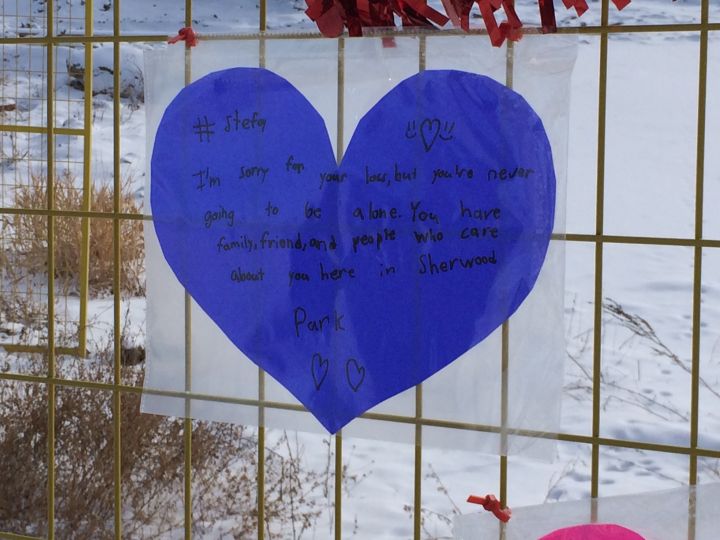 # Stefa
I'm sorry for your loss, but you're never
going to be alone. You have
family, friend, and people who care
about you here in Sherwood
Park